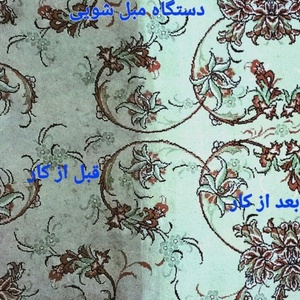 دستگاه مبل شویی
قبل از کار
بعد از کار